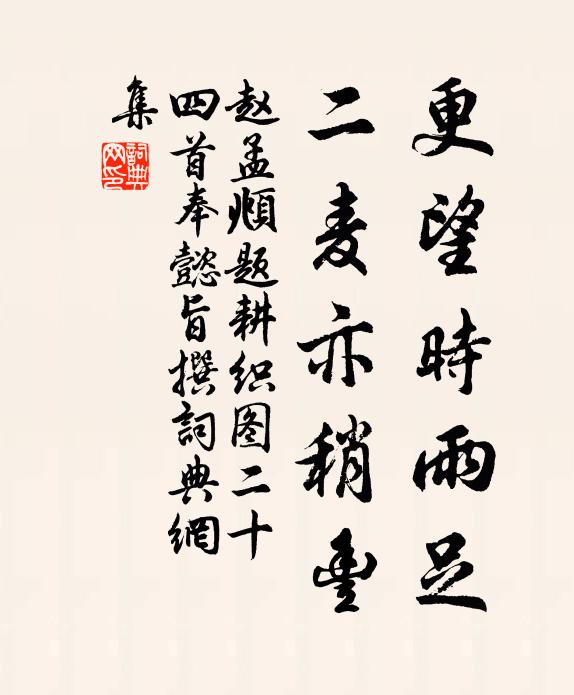 更望時雨足
二麦亦稍豊
赵孟頫题耕织图二十
四首奉懿旨撰詞典網
集
詞典網印